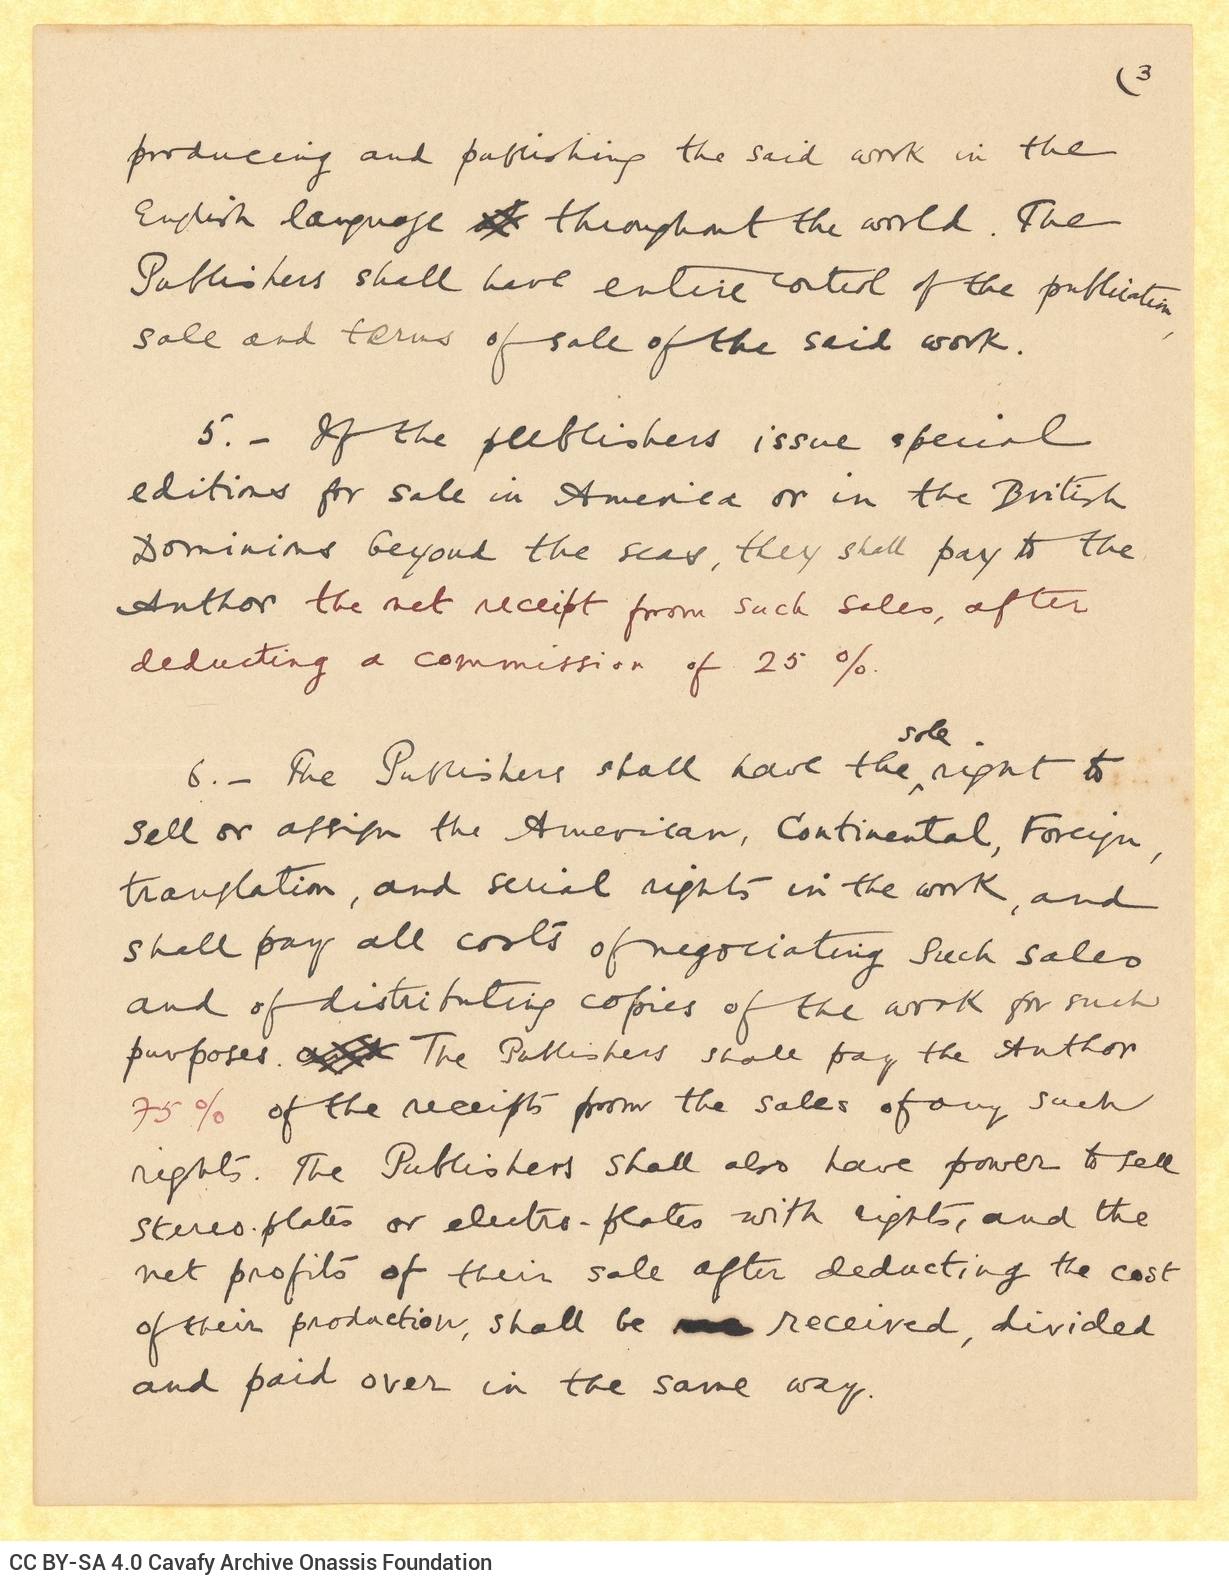 (3
producing and publishing the said work in the
English language throughout the world. The
Publishers shall have entire control of the publication,
sale and terms of sale of the said work.
5. - If the publishers issue special
editions for sale in America or in the British
Dominions beyond the seas, they shall pay to the
Author the net receipt from such sales, after
deducting a commission of 25 %.
sole
6. - The Publishers shall have the ‸ right to
sell or assign the American, Continental, Foreign,
translation, and serial rights in the work, and
shall pay all costs of negociating such sales
and of distributing copies of the work for such
purposes. The Publishers shall pay the Author
75 % of the receipts from the sales of any such
rights. The Publishers shall also have power to sell
stereo-plates or electro-plates with rights, and the
net profits of their sale after deducting the cost
of their production, shall be received, divided
and paid over in the same way.
CC BY-SA 4.0 Cavafy Archive Onassis Foundation